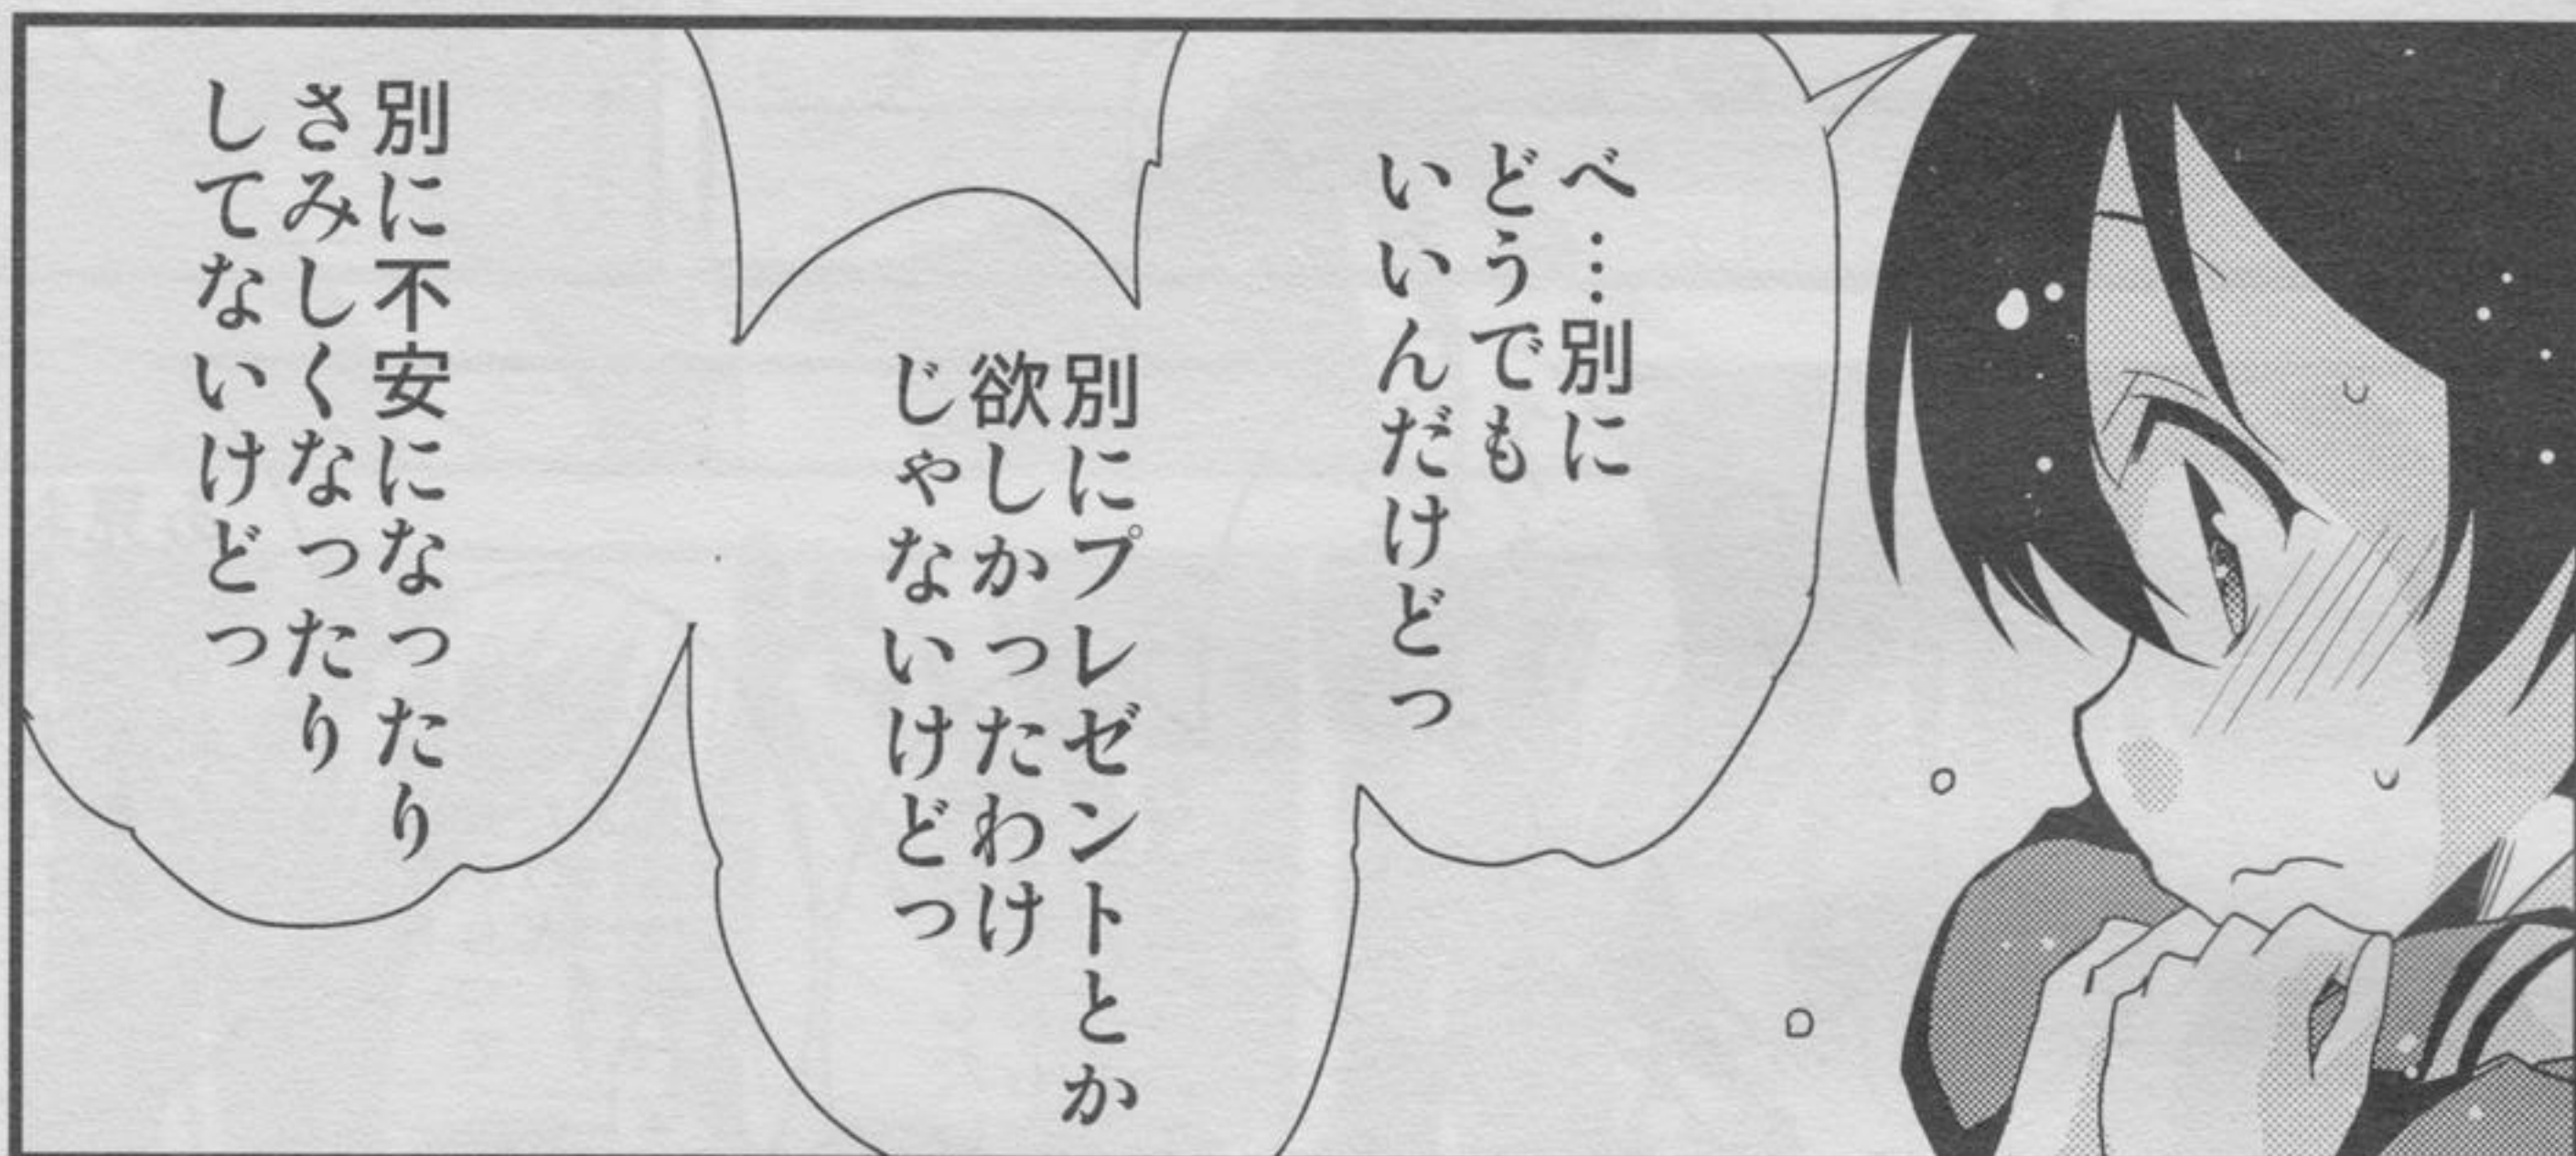 べ…別に
どうでも
いいんだけどっ
別にプレゼントとか
欲しかったわけ
じゃないけどっ
別に不安になったり
さみしくなったり
してないけどっ